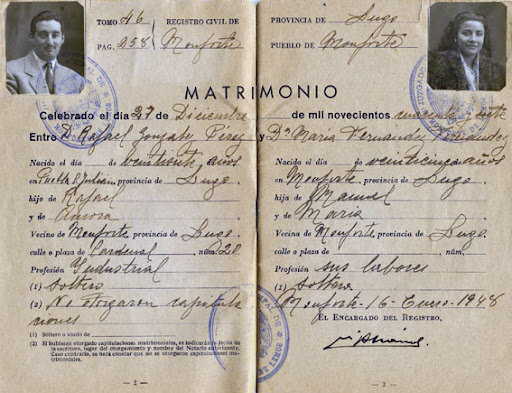 TOMO 46 REGISTRO CIVIL DE
PAG. 258 Monforte
PROVINCIA DE Lugo
PUEBLO DE Monforte
MATRIMONIO
Celebrado el día 27 de Diciembre de mil novecientos cuarenta y siete
Entre D. Rafael González Pérez y Dª María Fernández Fernández
Nacido el día de veintisiete años
en Puebla S. Julián provincia de Lugo
hijo de Rafael
y de
Vecino de Monforte provincia de Lugo
calle o plaza de Cardenal núm. 20
Profesión Industrial
(1) Soltero
(2) No otorgaron capitula
ciones
(1) Soltero o viudo de
(2) Si hubiesen otorgado capitulaciones matrimoniales, se indicarán la fecha de
la escritura, lugar del otorgamiento y nombre del Notario autorizante.
Caso contrario, se hará constar que no se otorgaron capitulaciones ma-
trimoniales.
— 2 —
Nacida el día de veinticinco años
en Monforte provincia de Lugo
hija de Manuel
y de María
Vecina de Monforte provincia de Lugo
calle o plaza de núm.
Profesión sus labores
(1) Soltera
Monforte 16 Enero 1948
EL ENCARGADO DEL REGISTRO,
— 3 —